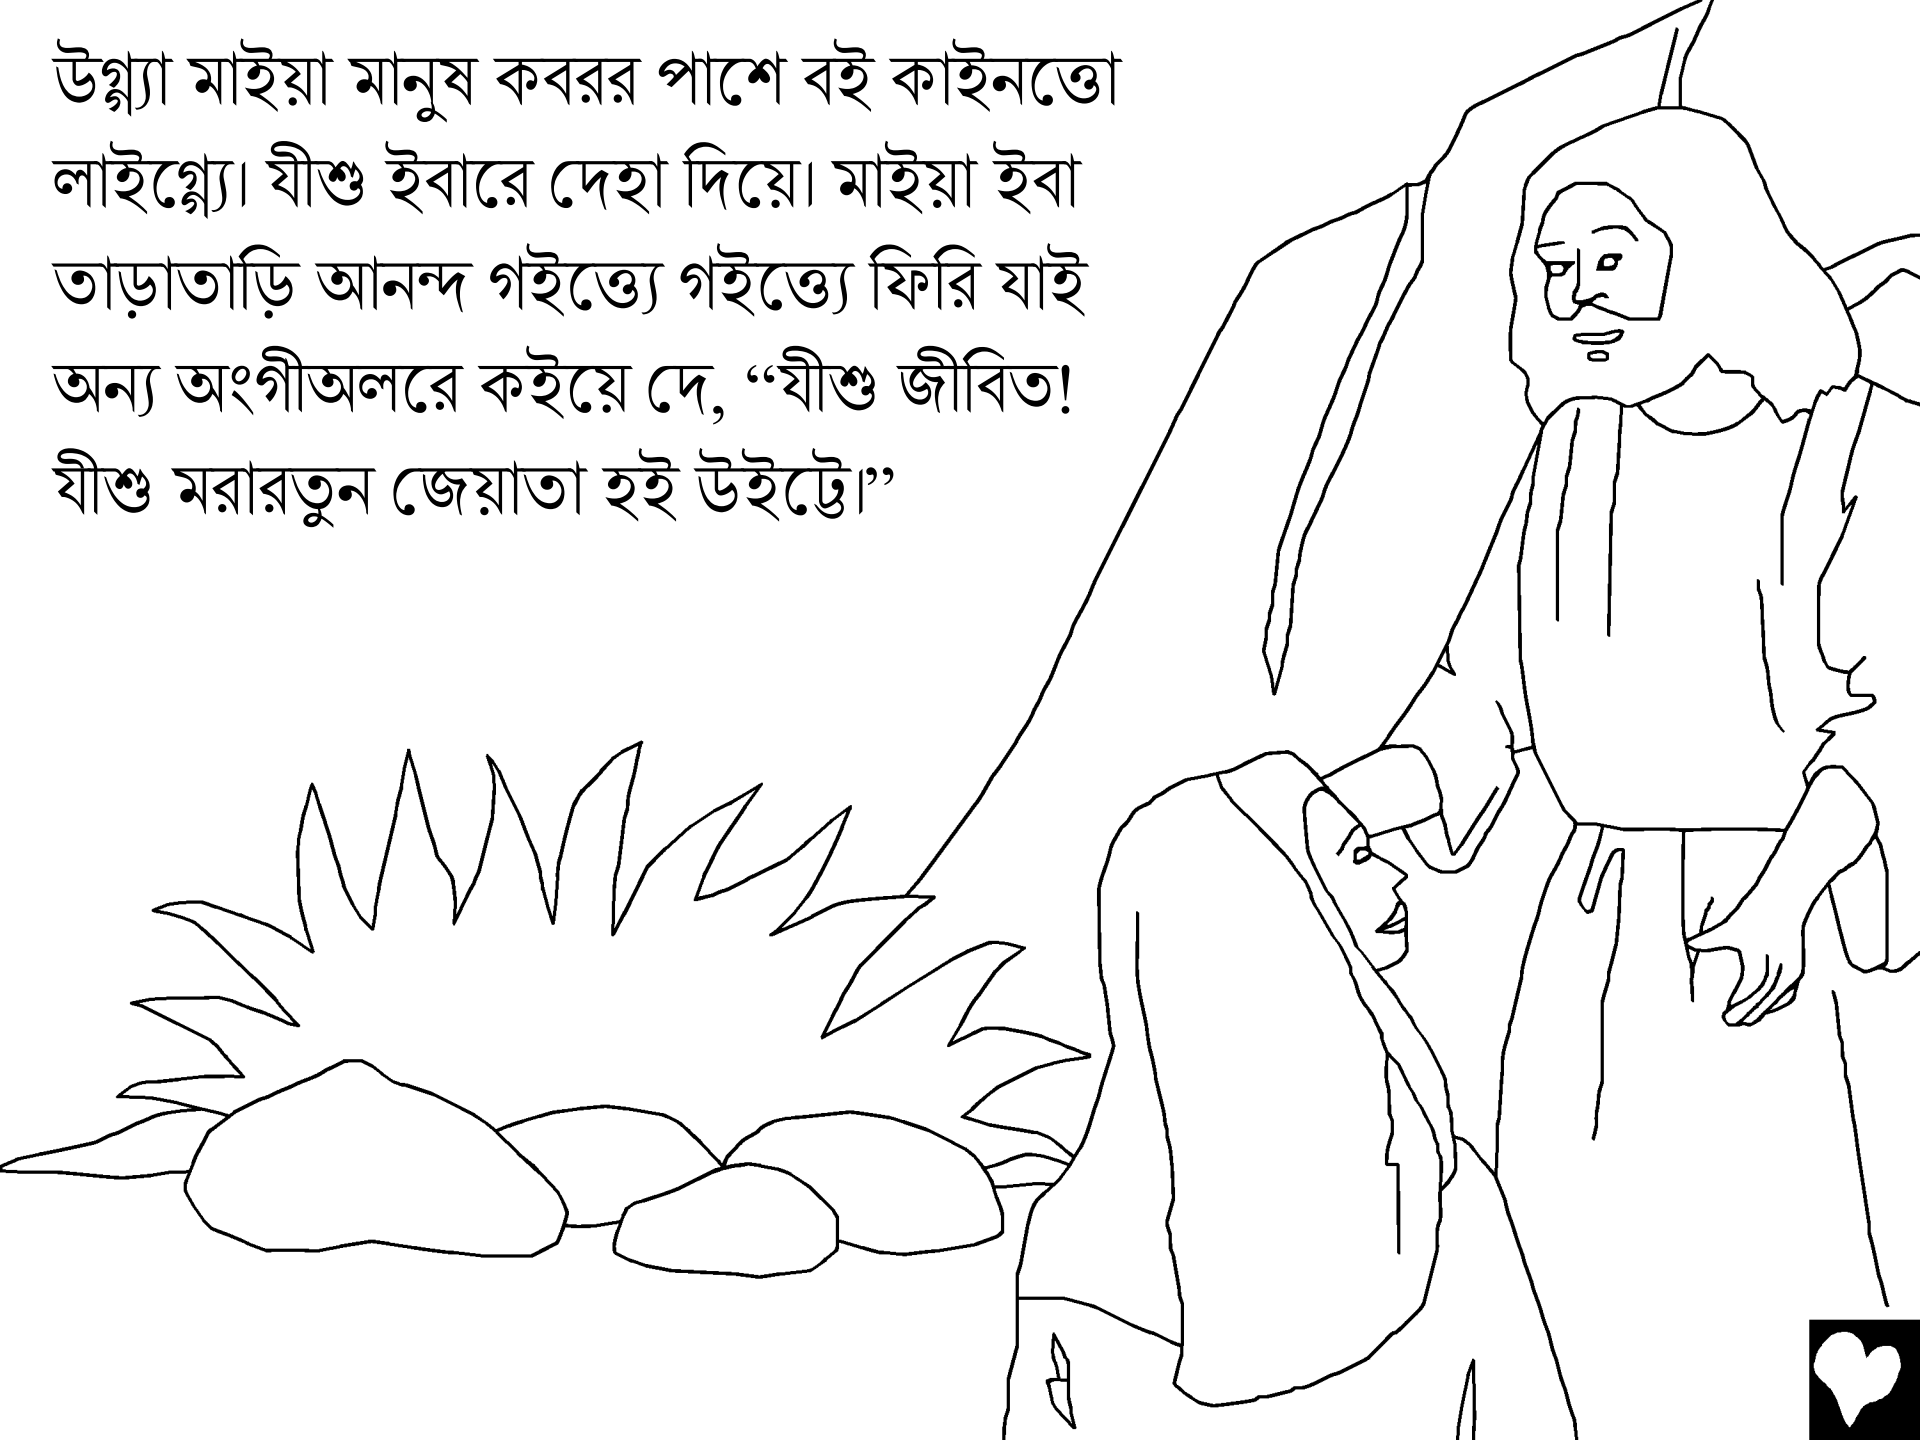 উগ্গ্যা মাইয়া মানুষ কবরর পাশে বই কাইনত্তো
লাইগ্গ্যে। যীশু ইবারে দেহা দিয়ে। মাইয়া ইবা
তাড়াতাড়ি আনন্দ গইত্ত্যে গইত্ত্যে ফিরি যাই
অন্য অংগীঅলরে কইয়ে দে, “যীশু জীবিত!
যীশু মরারতুন জেয়াতা হই উইট্টে।”